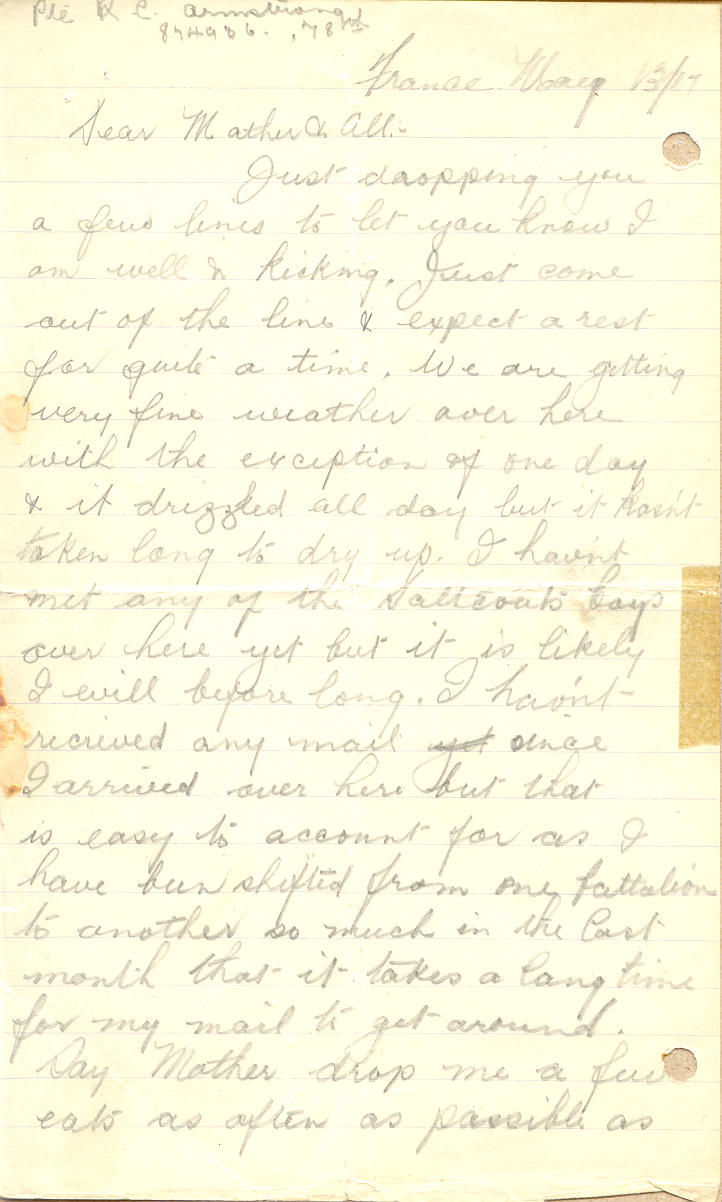 Pte R C. Armstrong
874936. , 78th
France May 13/17
Dear Mother & All:-
Just dropping you
a few lines to let you know I
am well & kicking. Just come
out of the line & expect a rest
for quite a time. We are getting
very fine weather over here
with the exception of one day
& it drizzled all day but it hasn't
taken long to dry up. I havn't
met any of the Saltcoats boys
over here yet but it is likely
I will before long. I havn't
recieved any mail yet since
I arrived over here but that
is easy to account for as I
have been shifted from one battalion
to another so much in the last
month that it takes a long time
for my mail to get around.
Say Mother drop me a few
eats as often as possible as